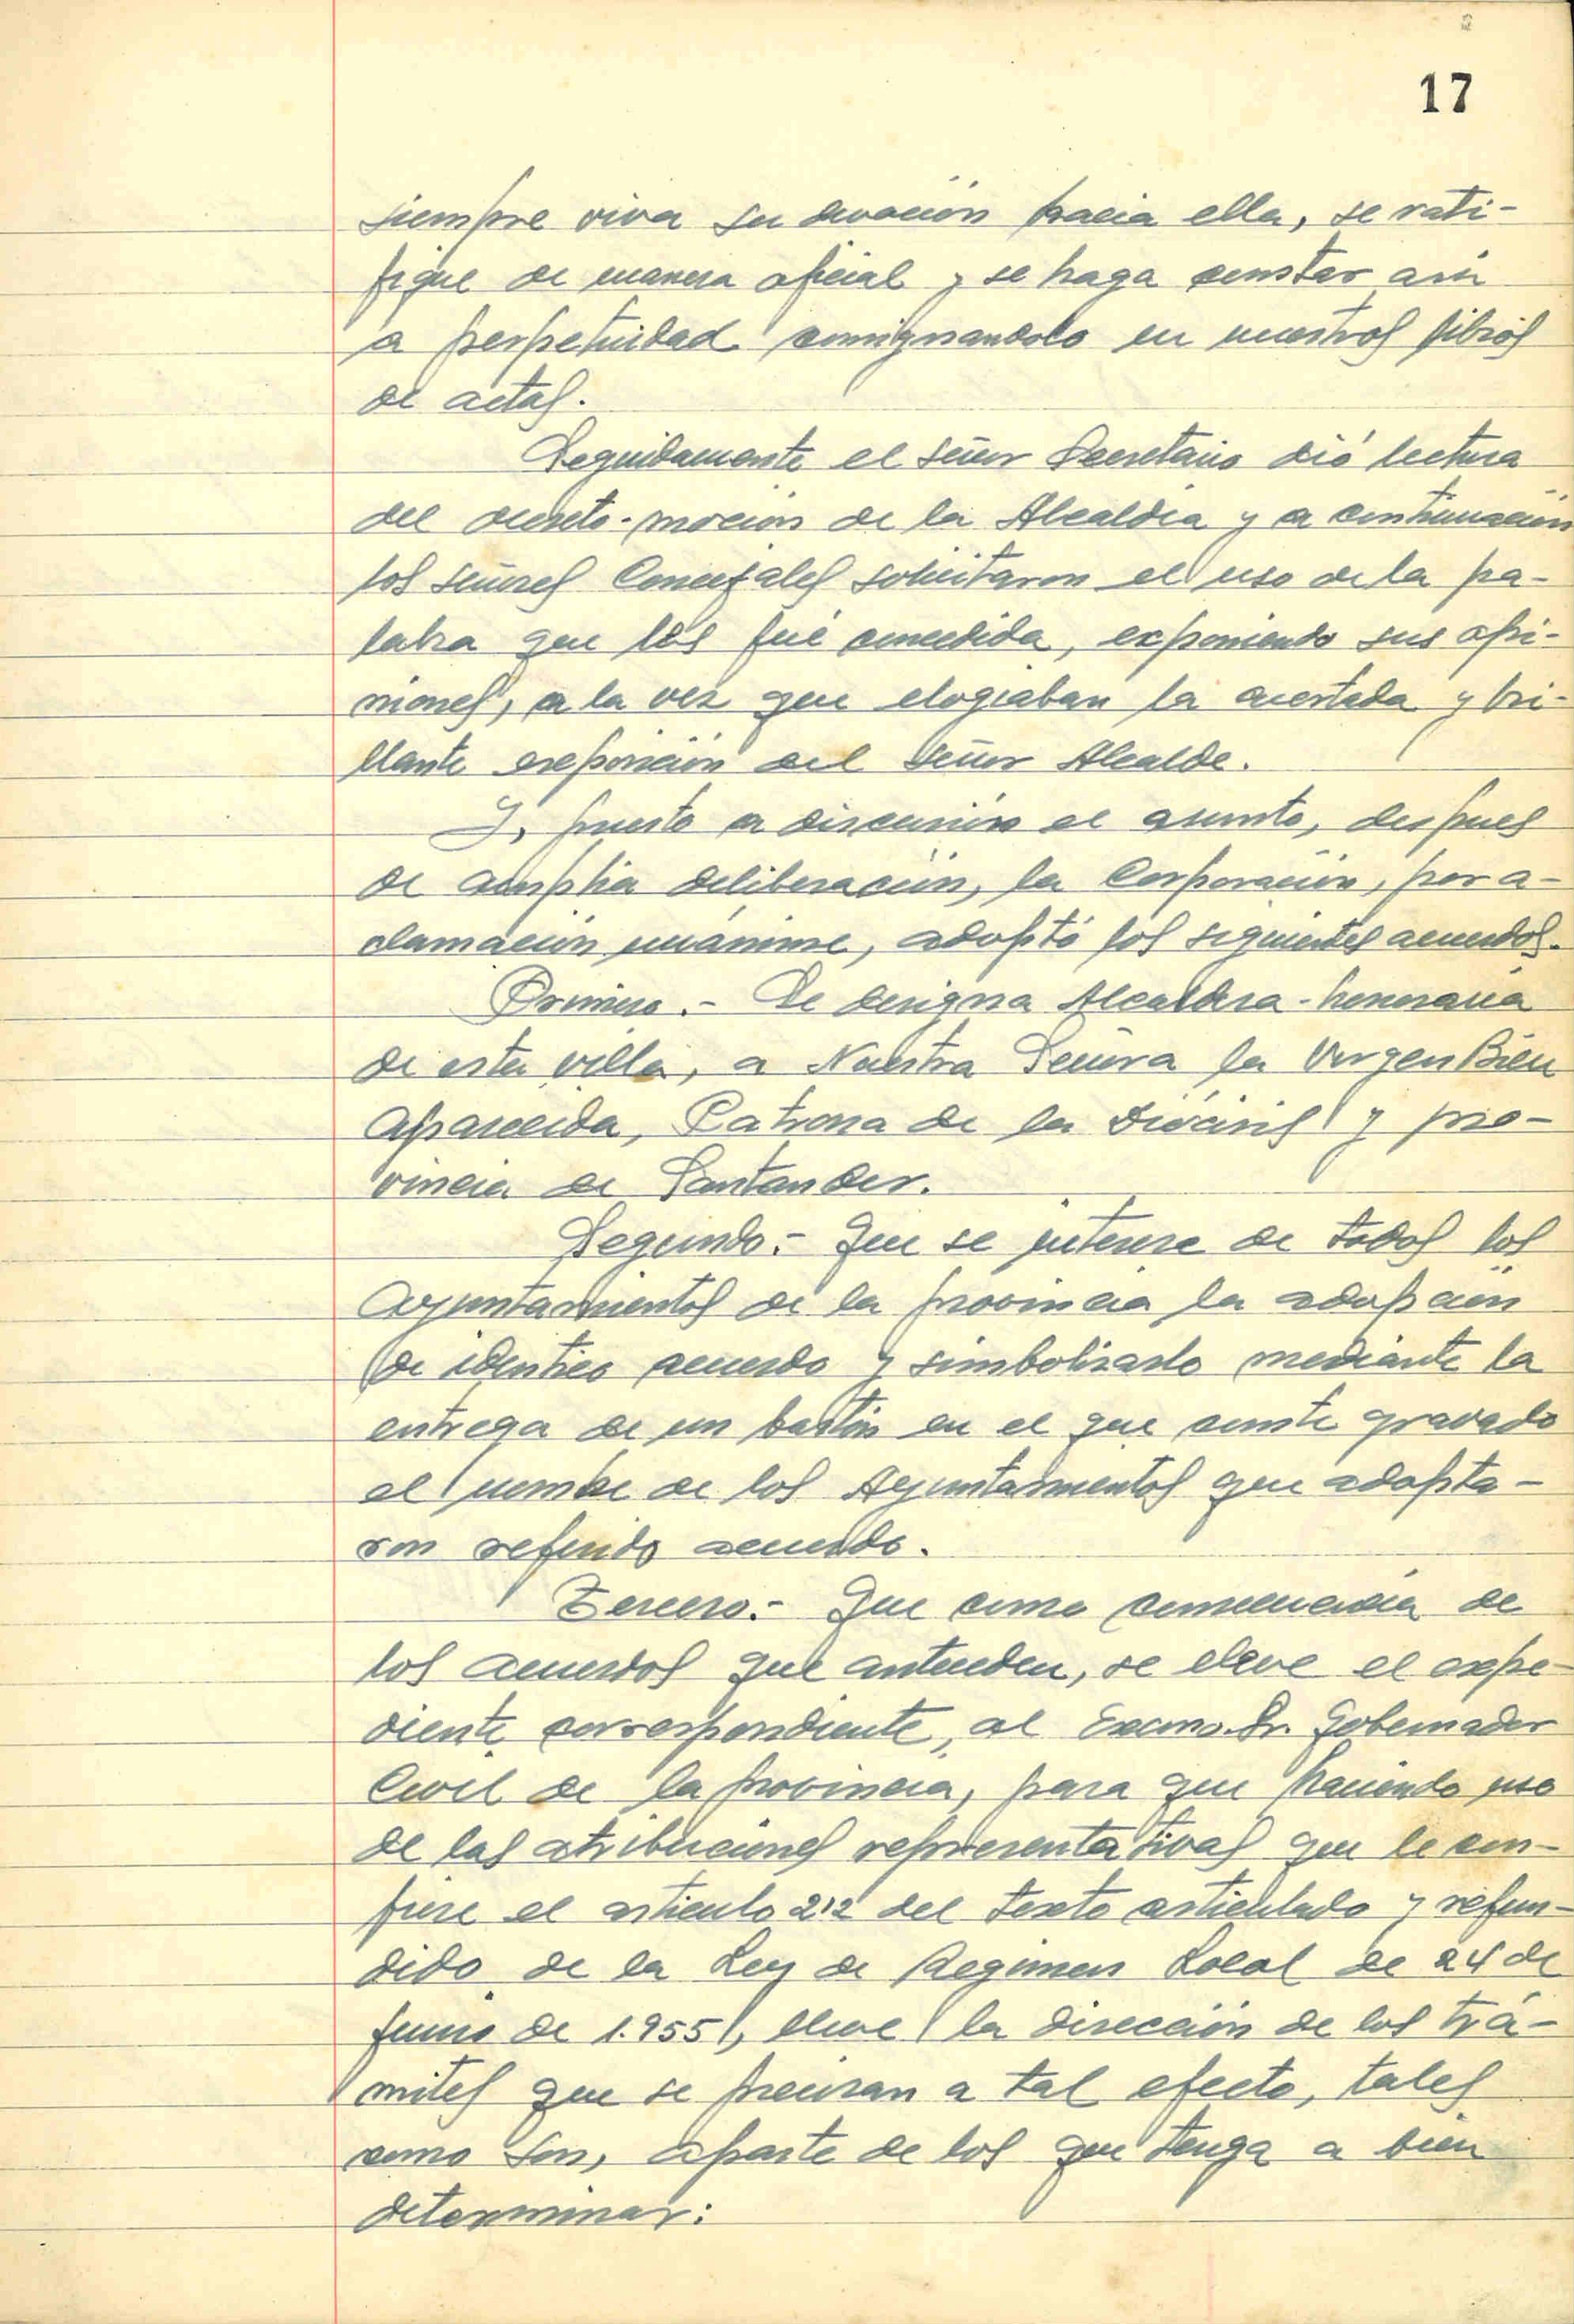 17
siempre viva su devoción hacia ella, se rati-
fique de manera oficial y se haga constar asi
a perpetuidad consignandolo en nuestros libros
de actas.
Seguidamente el señor Secretario dió lectura
del decreto-moción de la Alcaldia y a continuación
los señores Concejales solicitaron el uso de la pa-
labra que les fué concedida, exponiendo sus opi-
niones, a la vez que elogiaban la acertada y bri-
llante exposición del señor Alcalde.
Y, puesto a discusión el asunto, despues
de amplia deliberación, la Corporación, por a-
clamación unánime, adoptó los siguientes acuerdos.
Primero.- Se designa Alcaldesa-honoraria
de esta villa, a Nuestra Señora la Virgen Bien
Aparecida, Patrona de la Diócesis y pro-
vincia de Santander.
Segundo.- Que se interese de todos los
Ayuntamientos de la provincia la adopción
de identico acuerdo y simbolizarlo mediante la
entrega de un bastón en el que conste gravado
el nombre de los Ayuntamientos que adopta-
ron referido acuerdo.
Tercero.- Que como consecuencia de
los acuerdos que anteceden, se eleve el expe-
diente correspondiente, al Excmo. Sr. Gobernador
Civil de la provincia, para que haciendo uso
de las atribuciones representativas que le con-
fiere el articulo 212 del texto articulado y refun-
dido de la Ley de Regimen Local de 24 de
Junio de 1.955, lleve la dirección de los trá-
mites que se precisan a tal efecto, tales
como son, aparte de los que tenga a bien
determinar: